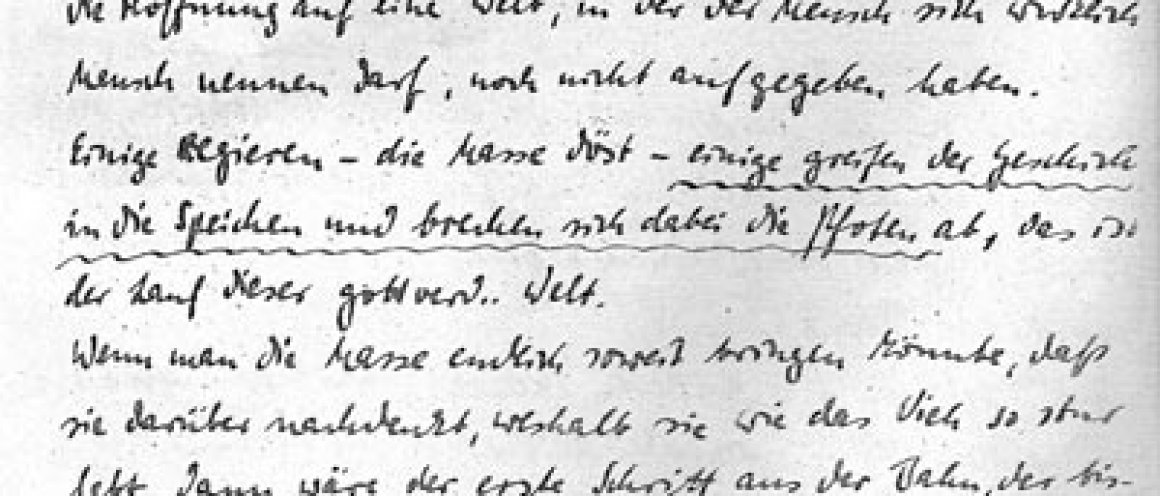 die Hoffnung auf eine Welt, in der der Mensch sich wirklich
Mensch nennen darf, noch nicht aufgegeben haben.
Einige Regieren – die Masse döst – einige greifen der Geschich
in die Speichen und brechen sich dabei die Pfoten ab, das ist
der Lauf dieser gottverd.. Welt.
Wenn man die Masse endlich soweit bringen könnte, daß
sie darüber nachdenkt, weshalb sie wie das Vieh so stur
lebt, dann wäre der erste Schritt aus der Bahn, der bis-